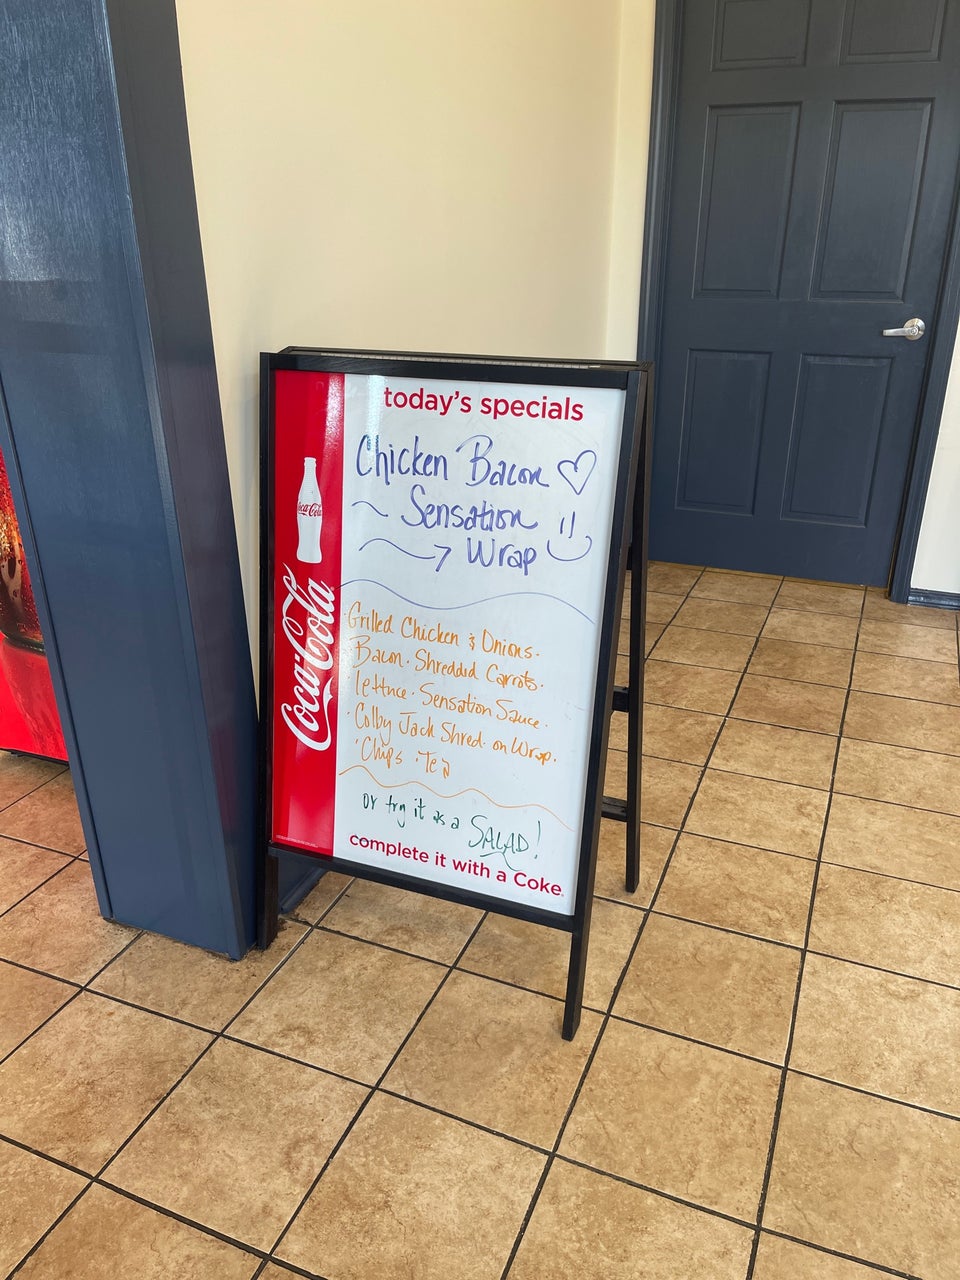 today's specials
Chicken Bacon
Sensation
Wrap
Coca-Cola
Coca-Cola
Grilled Chicken & Onions.
Bacon. Shredded Carrots.
lettuce. Sensation Sauce.
Colby Jack Shred. on Wrap.
Chips. Tea
or try it as a SALAD!
complete it with a Coke